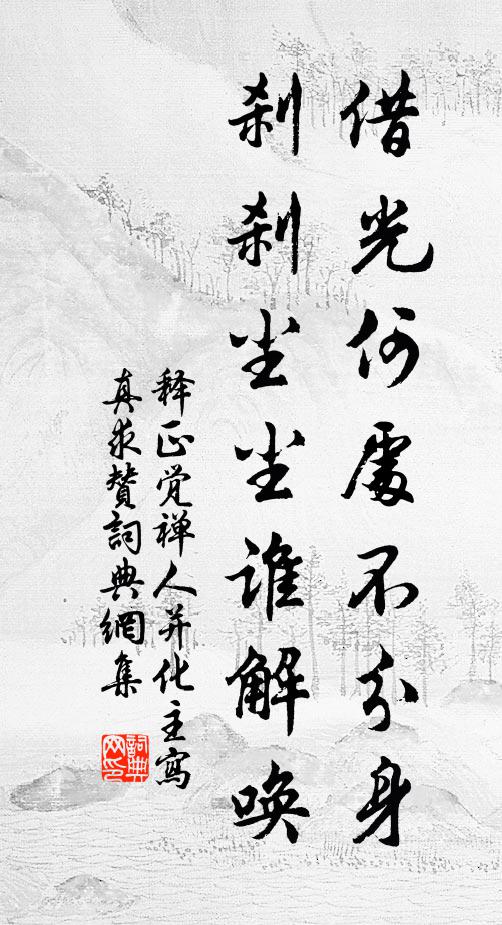 借光何處不分身
刹刹尘尘谁解唤
释正觉禅人并化主寫
真求赞詞典網集
詞典
网印